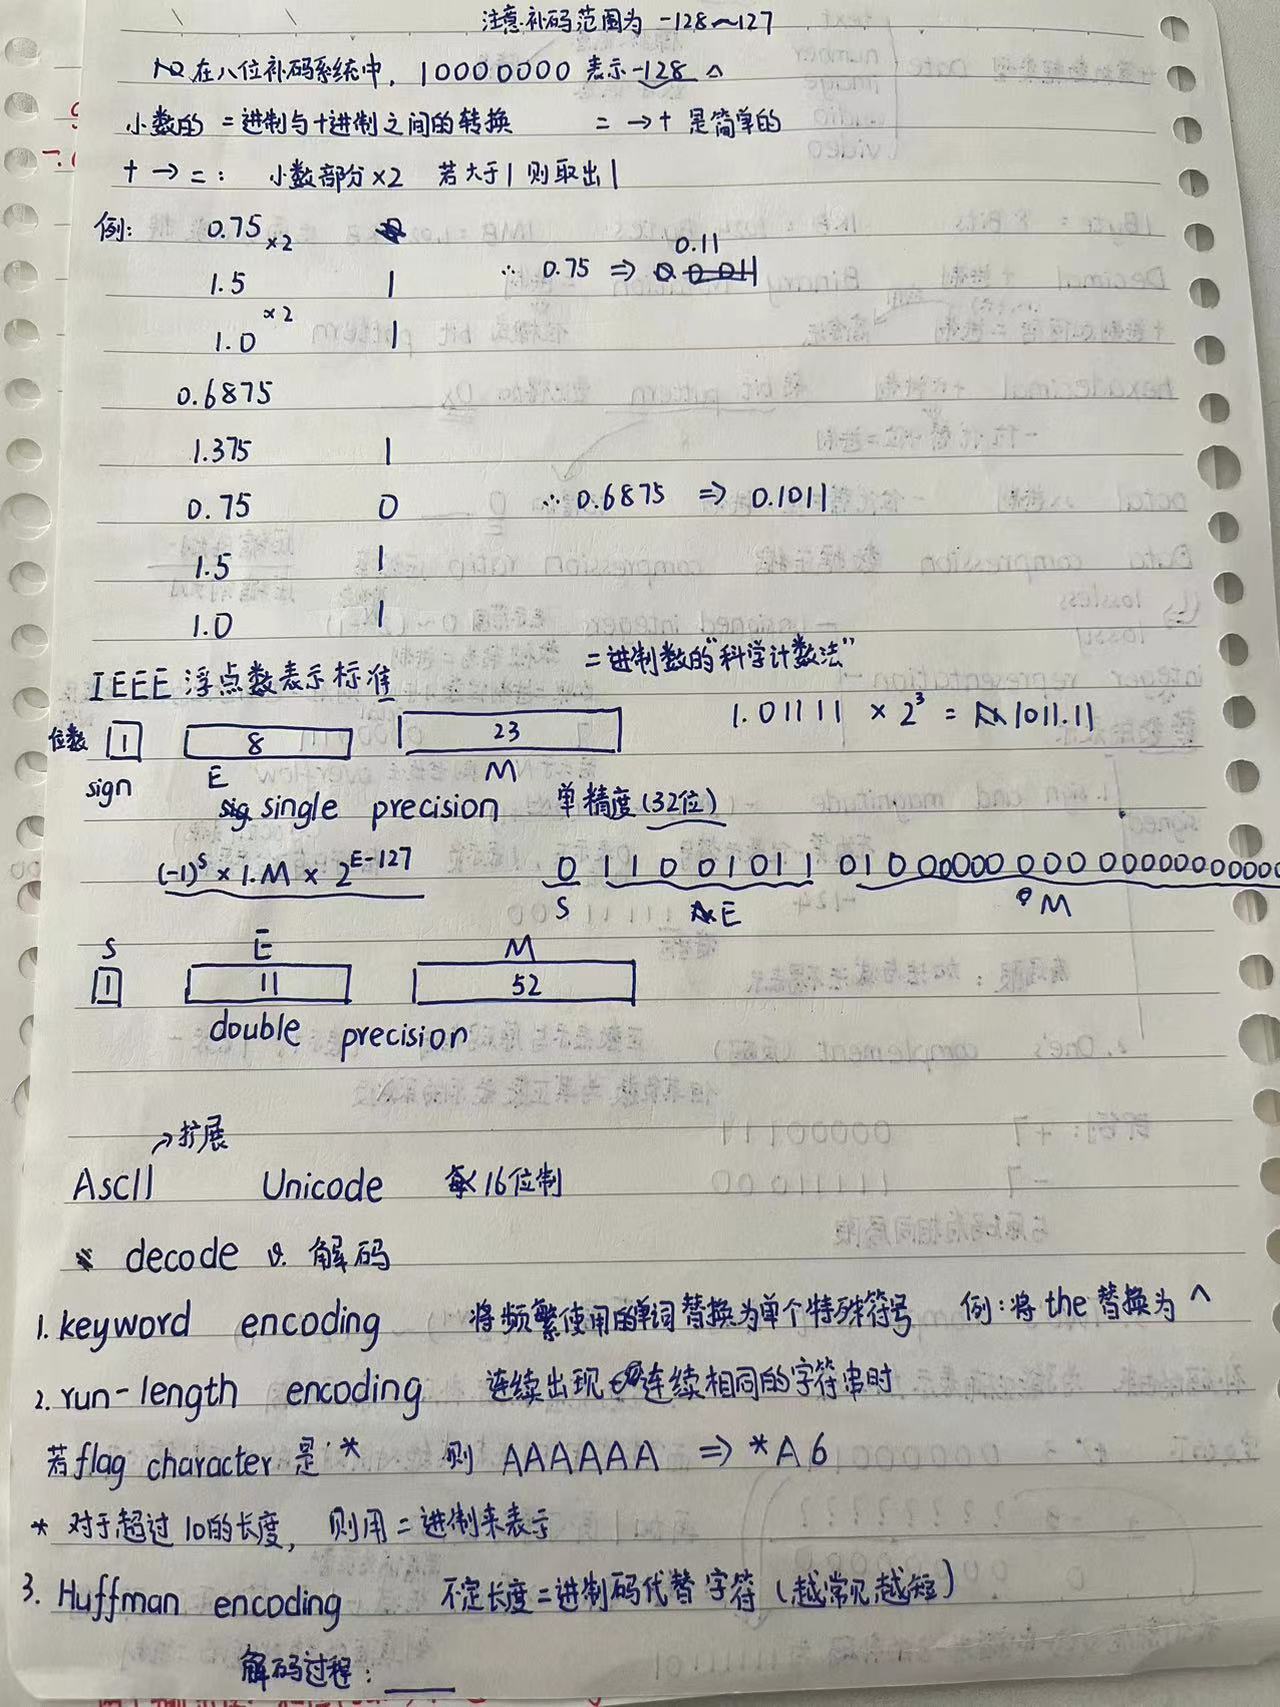 注意补码范围为 -128～127
在八位补码系统中，10000000 表示-128
小数的二进制与十进制之间的转换 二→十 是简单的
十→二： 小数部分×2 若大于1则取出1
例： 0.75 ×2
0.11
1.5 1 ∴ 0.75 ⇒
×2
1.0 1
0.6875
1.375 1
0.75 0 ∴ 0.6875 ⇒ 0.1011
1.5 1
1.0 1
二进制数的"科学计数法"
IEEE 浮点数表示标准
1.01111 × 2³ = 1011.11
位数 1 8 23
sign E M
single precision 单精度(32位)
(-1)ˢ × 1.M × 2ᴱ⁻¹²⁷ 0 11001011 01000000000000000000000
S E M
S E M
1 11 52
double precision
→扩展
AscII Unicode 16位制
decode v. 解码
1. keyword encoding 将频繁使用的单词替换为单个特殊符号 例：将 the 替换为 ^
2. run-length encoding 连续出现 连续相同的字符串时
若flag character 是 * 则 AAAAAA ⇒ *A6
* 对于超过10的长度， 则用二进制来表示
3. Huffman encoding 不定长度二进制码代替字符（越常见越短）
解码过程：